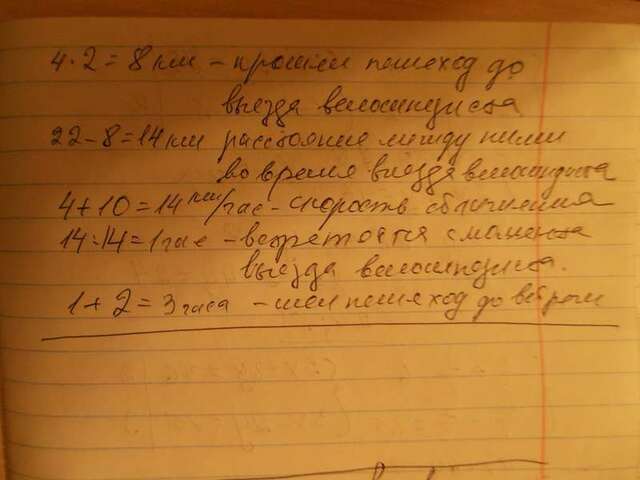 4·2=8км – прошёл пешеход до
выезда велосипедиста
22-8=14км расстояние между ними
во время выезда велосипедиста
4+10=14км/час - скорость сближения
14:14=1час - встретятся с момента
выезда велосипедиста.
1+2=3часа - шел пешеход до встречи